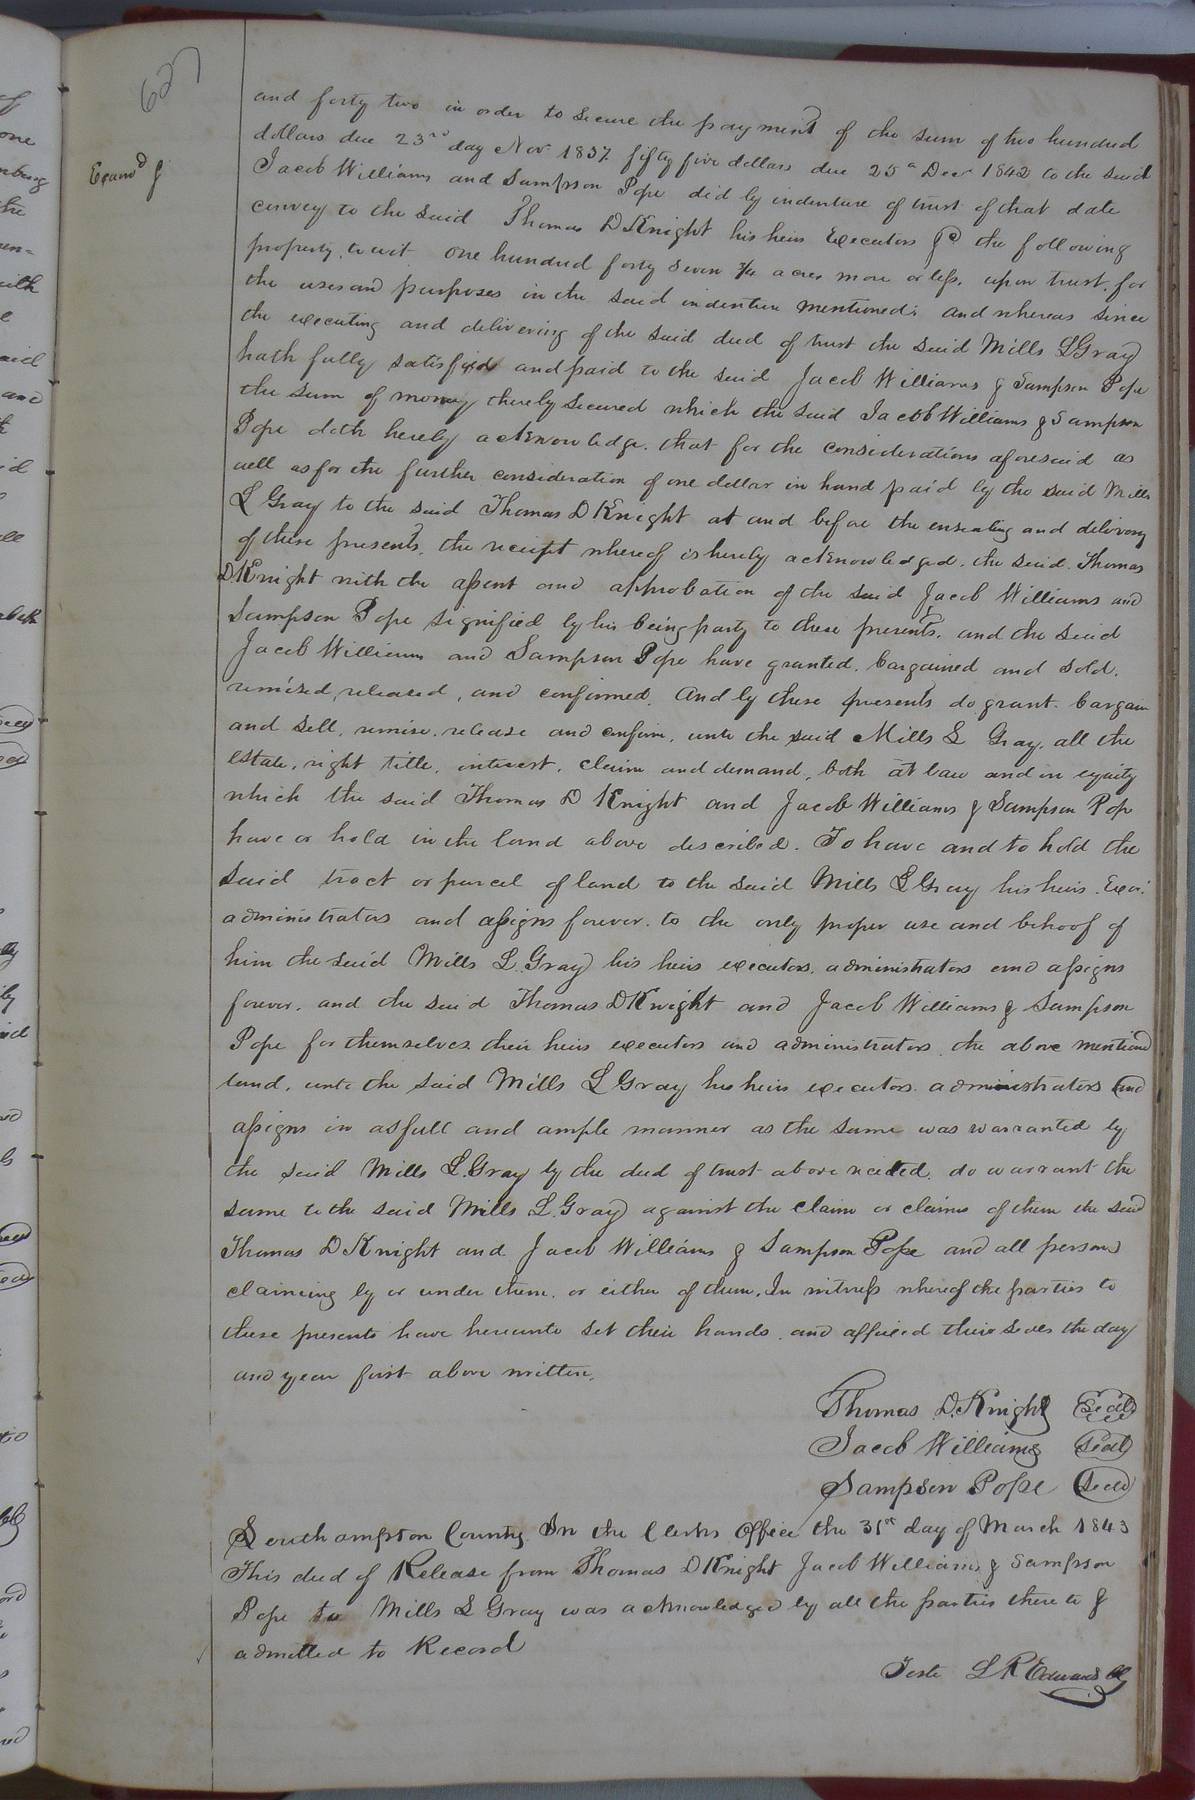 627
Examd
and forty two in order to secure the payment of the sum of two hundred
dollars due 23rd day Nov 1837 fifty five dollars due 25th Decr 1842 to the said
Jacob Williams and Sampson Pope did by indenture of trust of that date
convey to the said Thomas D Knight his heirs Executors &c the following
property, to wit one hundred forty seven 3/4 acres more or less. upon trust, for
the uses and purposes in the said indenture mentioned; and whereas since
the executing and delivering of the said deed of trust the said Mills L Gray
hath fully satisfied and paid to the said Jacob Williams & Sampson Pope
the sum of money thereby secured which the said Jacob Williams & Sampson
Pope doth hereby acknowledge. that for the considerations aforesaid as
well as for the further consideration of one dollar in hand paid by the said Mills
L Gray to the said Thomas D Knight at and before the ensealing and delivery
of these presents, the receipt whereof is hereby acknowledged. the said Thomas
D Knight with the assent and approbation of the said Jacob Williams and
Sampson Pope signified by his being party to these presents. and the said
Jacob Williams and Sampson Pope have granted. bargained and sold.
remised, released, and confirmed. And by these presents do grant. bargain
and sell, remise, release and confirm, unto the said Mills L Gray, all the
estate, right title, interest, claim and demand, both at law and in equity
which the said Thomas D Knight and Jacob Williams & Sampson Pope
have or hold in the land above described. To have and to hold the
said tract or parcel of land to the said Mills L Gray his heirs. Exors.
administrators and assigns forever. to the only proper use and behoof of
him the said Mills L. Gray his heirs executors, administrators and assigns
forever. and the said Thomas D Knight and Jacob Williams & Sampson
Pope for themselves their heirs executors and administrators. the above mentiond
land, unto the said Mills L Gray his heirs executors administrators and
assigns in as full and ample manner as the same was warranted by
the said Mills L. Gray by the deed of trust above recited. do warrant the
same to the said Mills L. Gray against the claim or claims of them the said
Thomas D Knight and Jacob Williams & Sampson Pope and all persons
claiming by or under them, or either of them. In witness whereof the parties to
these presents have hereunto set their hands, and affixed their seals the day
and year first above written.
Thomas D. Knight Seal
Jacob Williams Seal
Sampson Pope Seal
Southampton County In the Clerks Office the 31st day of March 1843
This deed of Release from Thomas D Knight Jacob Williams & Sampson
Pope to Mills L Gray was acknowledged by all the parties thereto &
admitted to Record
Teste L R Edwards Clk